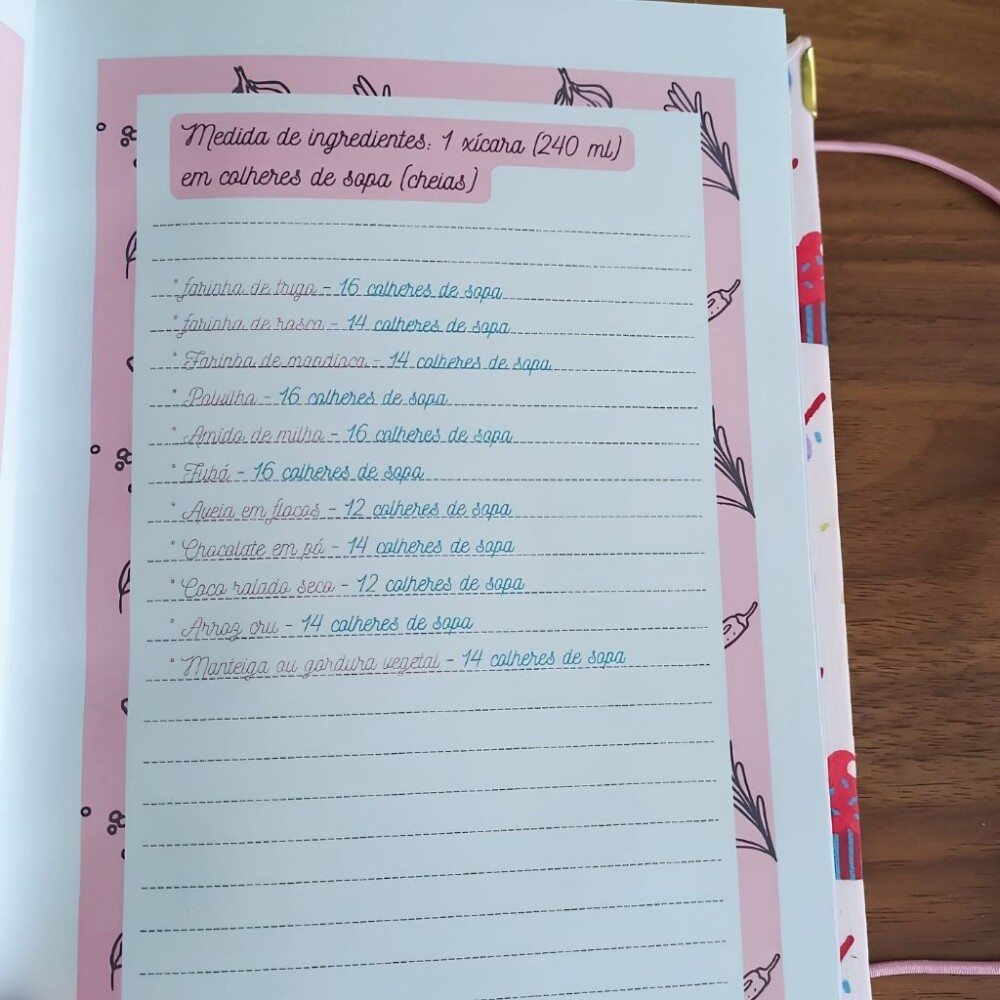 Medida de ingredientes: 1 xícara (240 ml)
em colheres de sopa (cheias)
* farinha de trigo - 16 colheres de sopa
* farinha de rosca - 14 colheres de sopa
* Farinha de mandioca - 14 colheres de sopa
* Polvilho - 16 colheres de sopa
* Amido de milho - 16 colheres de sopa
* Fubá - 16 colheres de sopa
* Aveia em flocos - 12 colheres de sopa
* Chocolate em pó - 14 colheres de sopa
* Coco ralado seco - 12 colheres de sopa
* Arroz cru - 14 colheres de sopa
* Manteiga ou gordura vegetal - 14 colheres de sopa